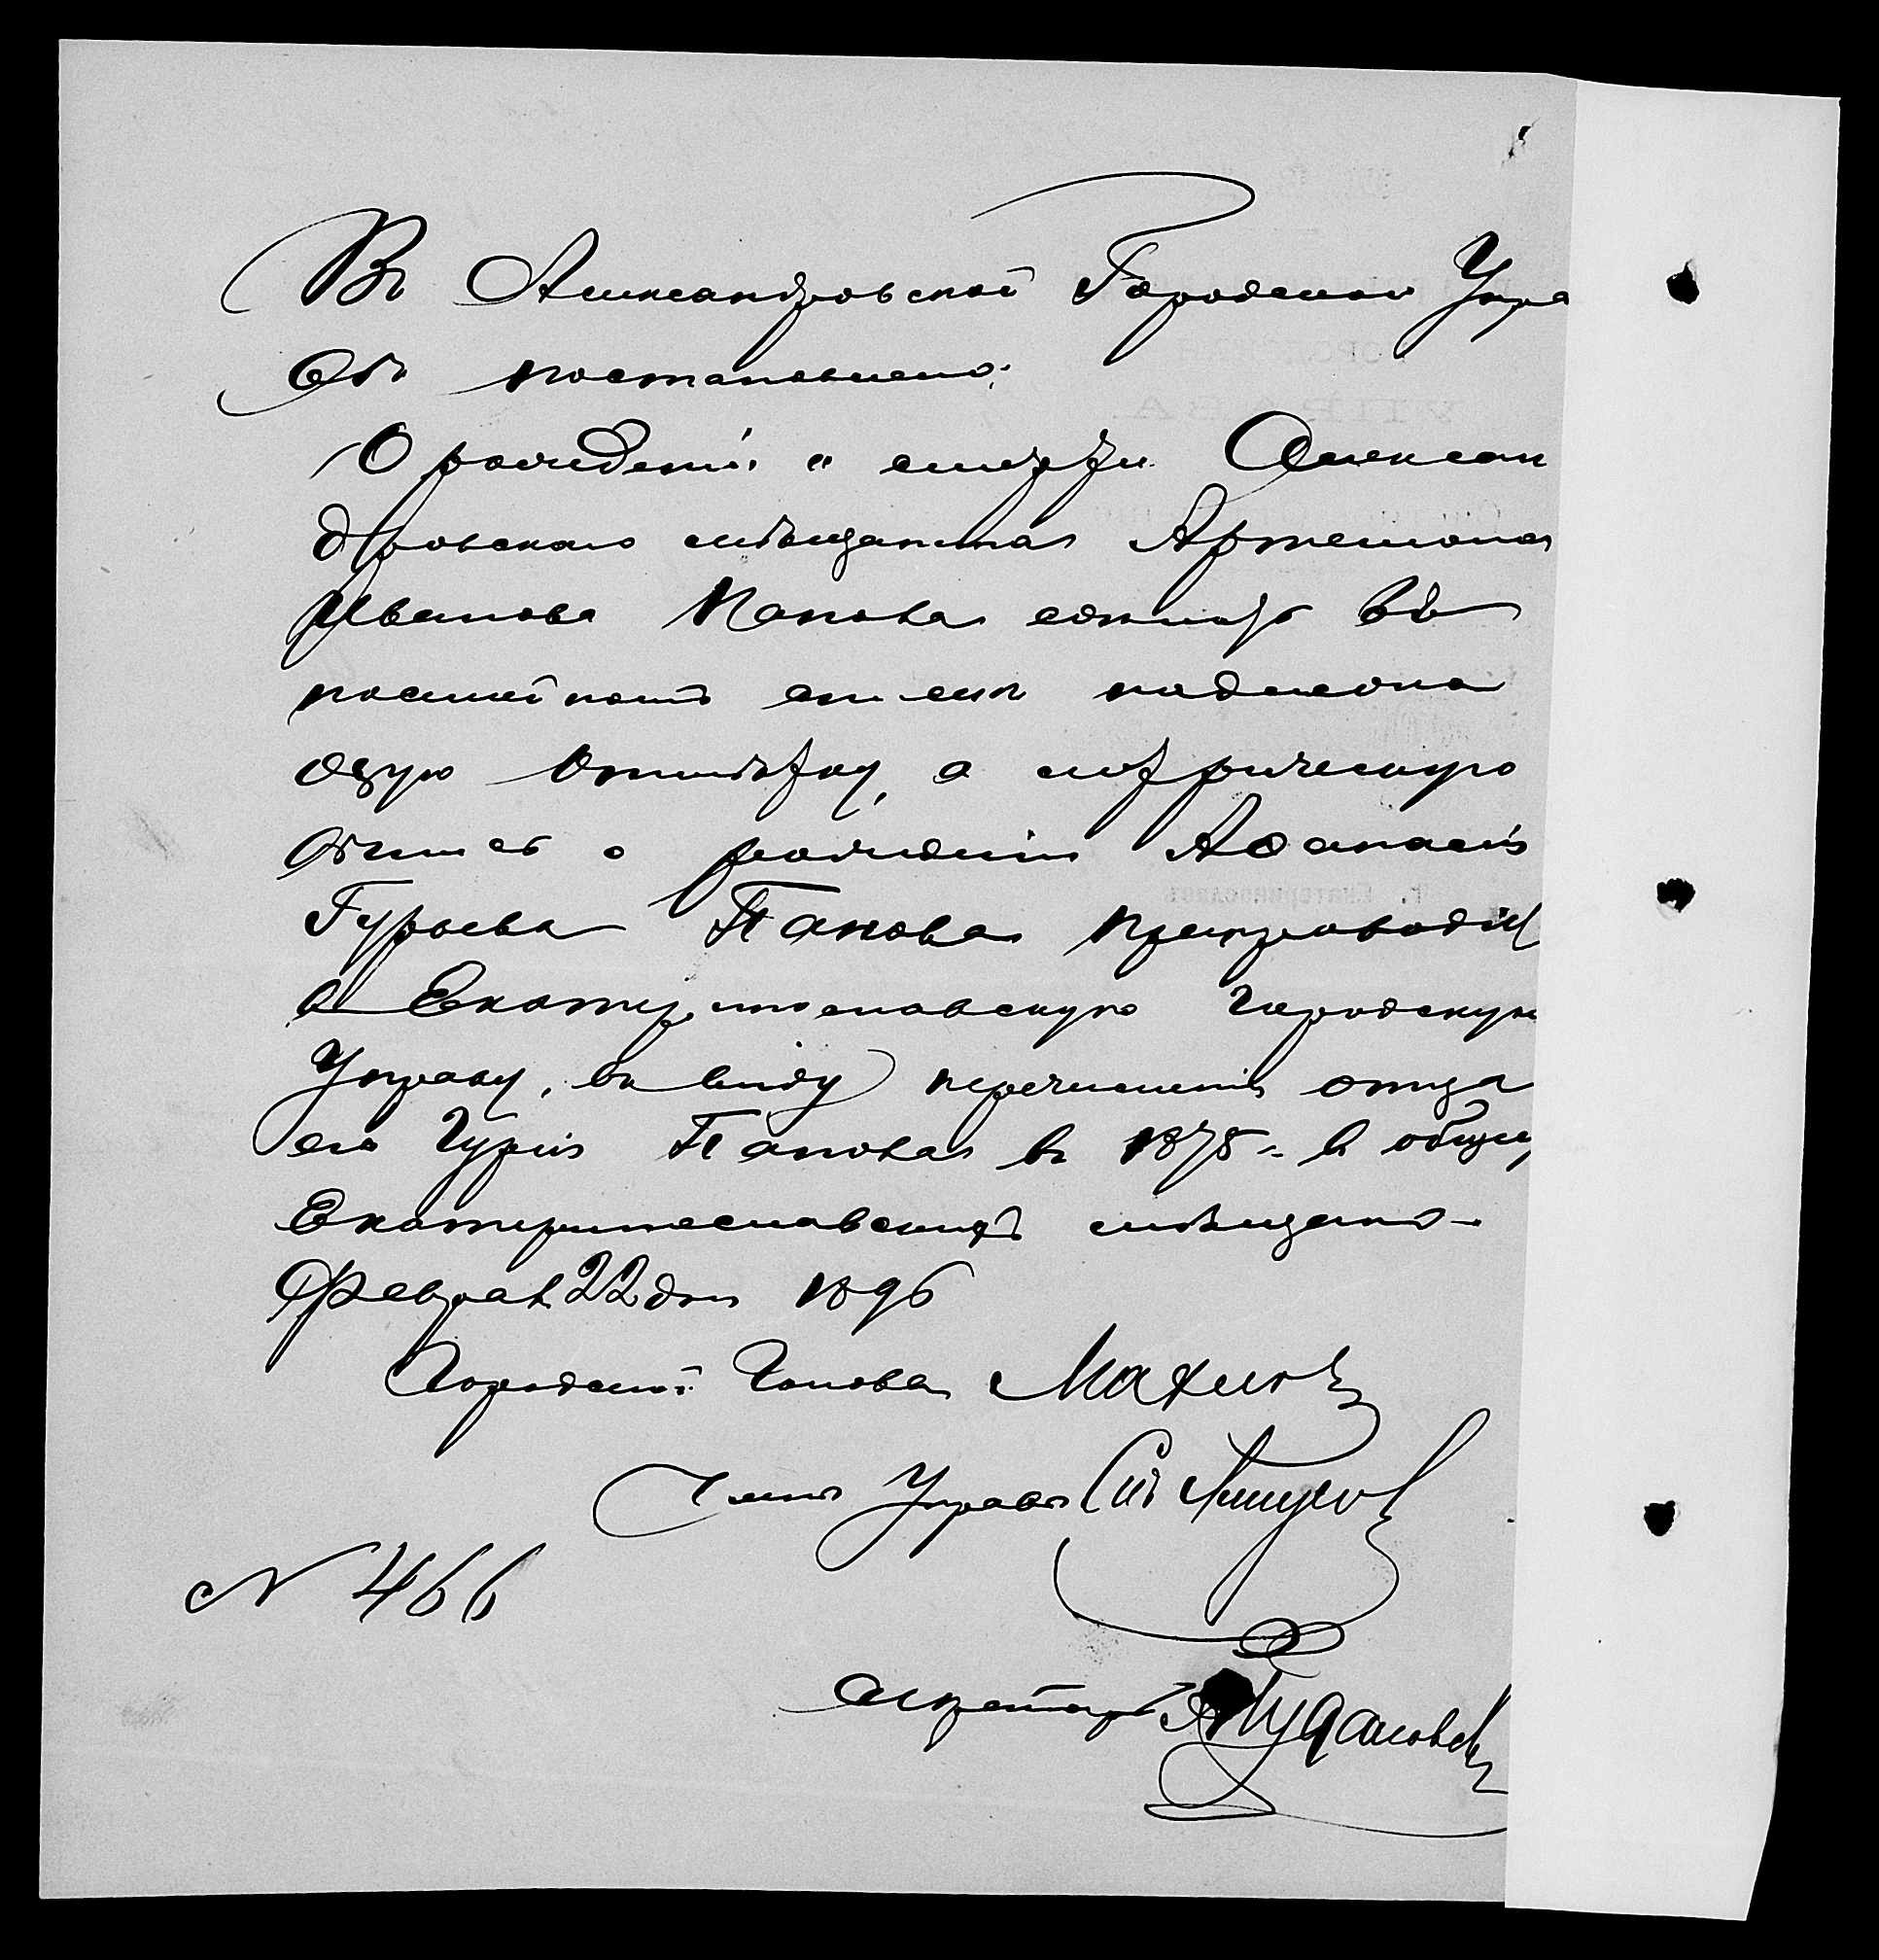 Въ Александровской Городской Упра
вѣ постановлено:
О рожденіи и смерти Алексан
дровскаго мѣщанина Артемона
Иванова Попова сдѣлать въ
посемейномъ спискѣ надлежа
щую отмѣтку, а метрическую
выпись о рожденіи Афанасія
Гурьева Попова препроводит
в Екатеринославскую Городскую
Управу, въ виду перечисленія отца
его Гурія Попова въ 1875 г. в общест
Екатеринославскихъ мѣщанъ.
Феврал 22 дня 1896
Городской Голова Махинъ
Членъ Управы
№ 466
Секретарь